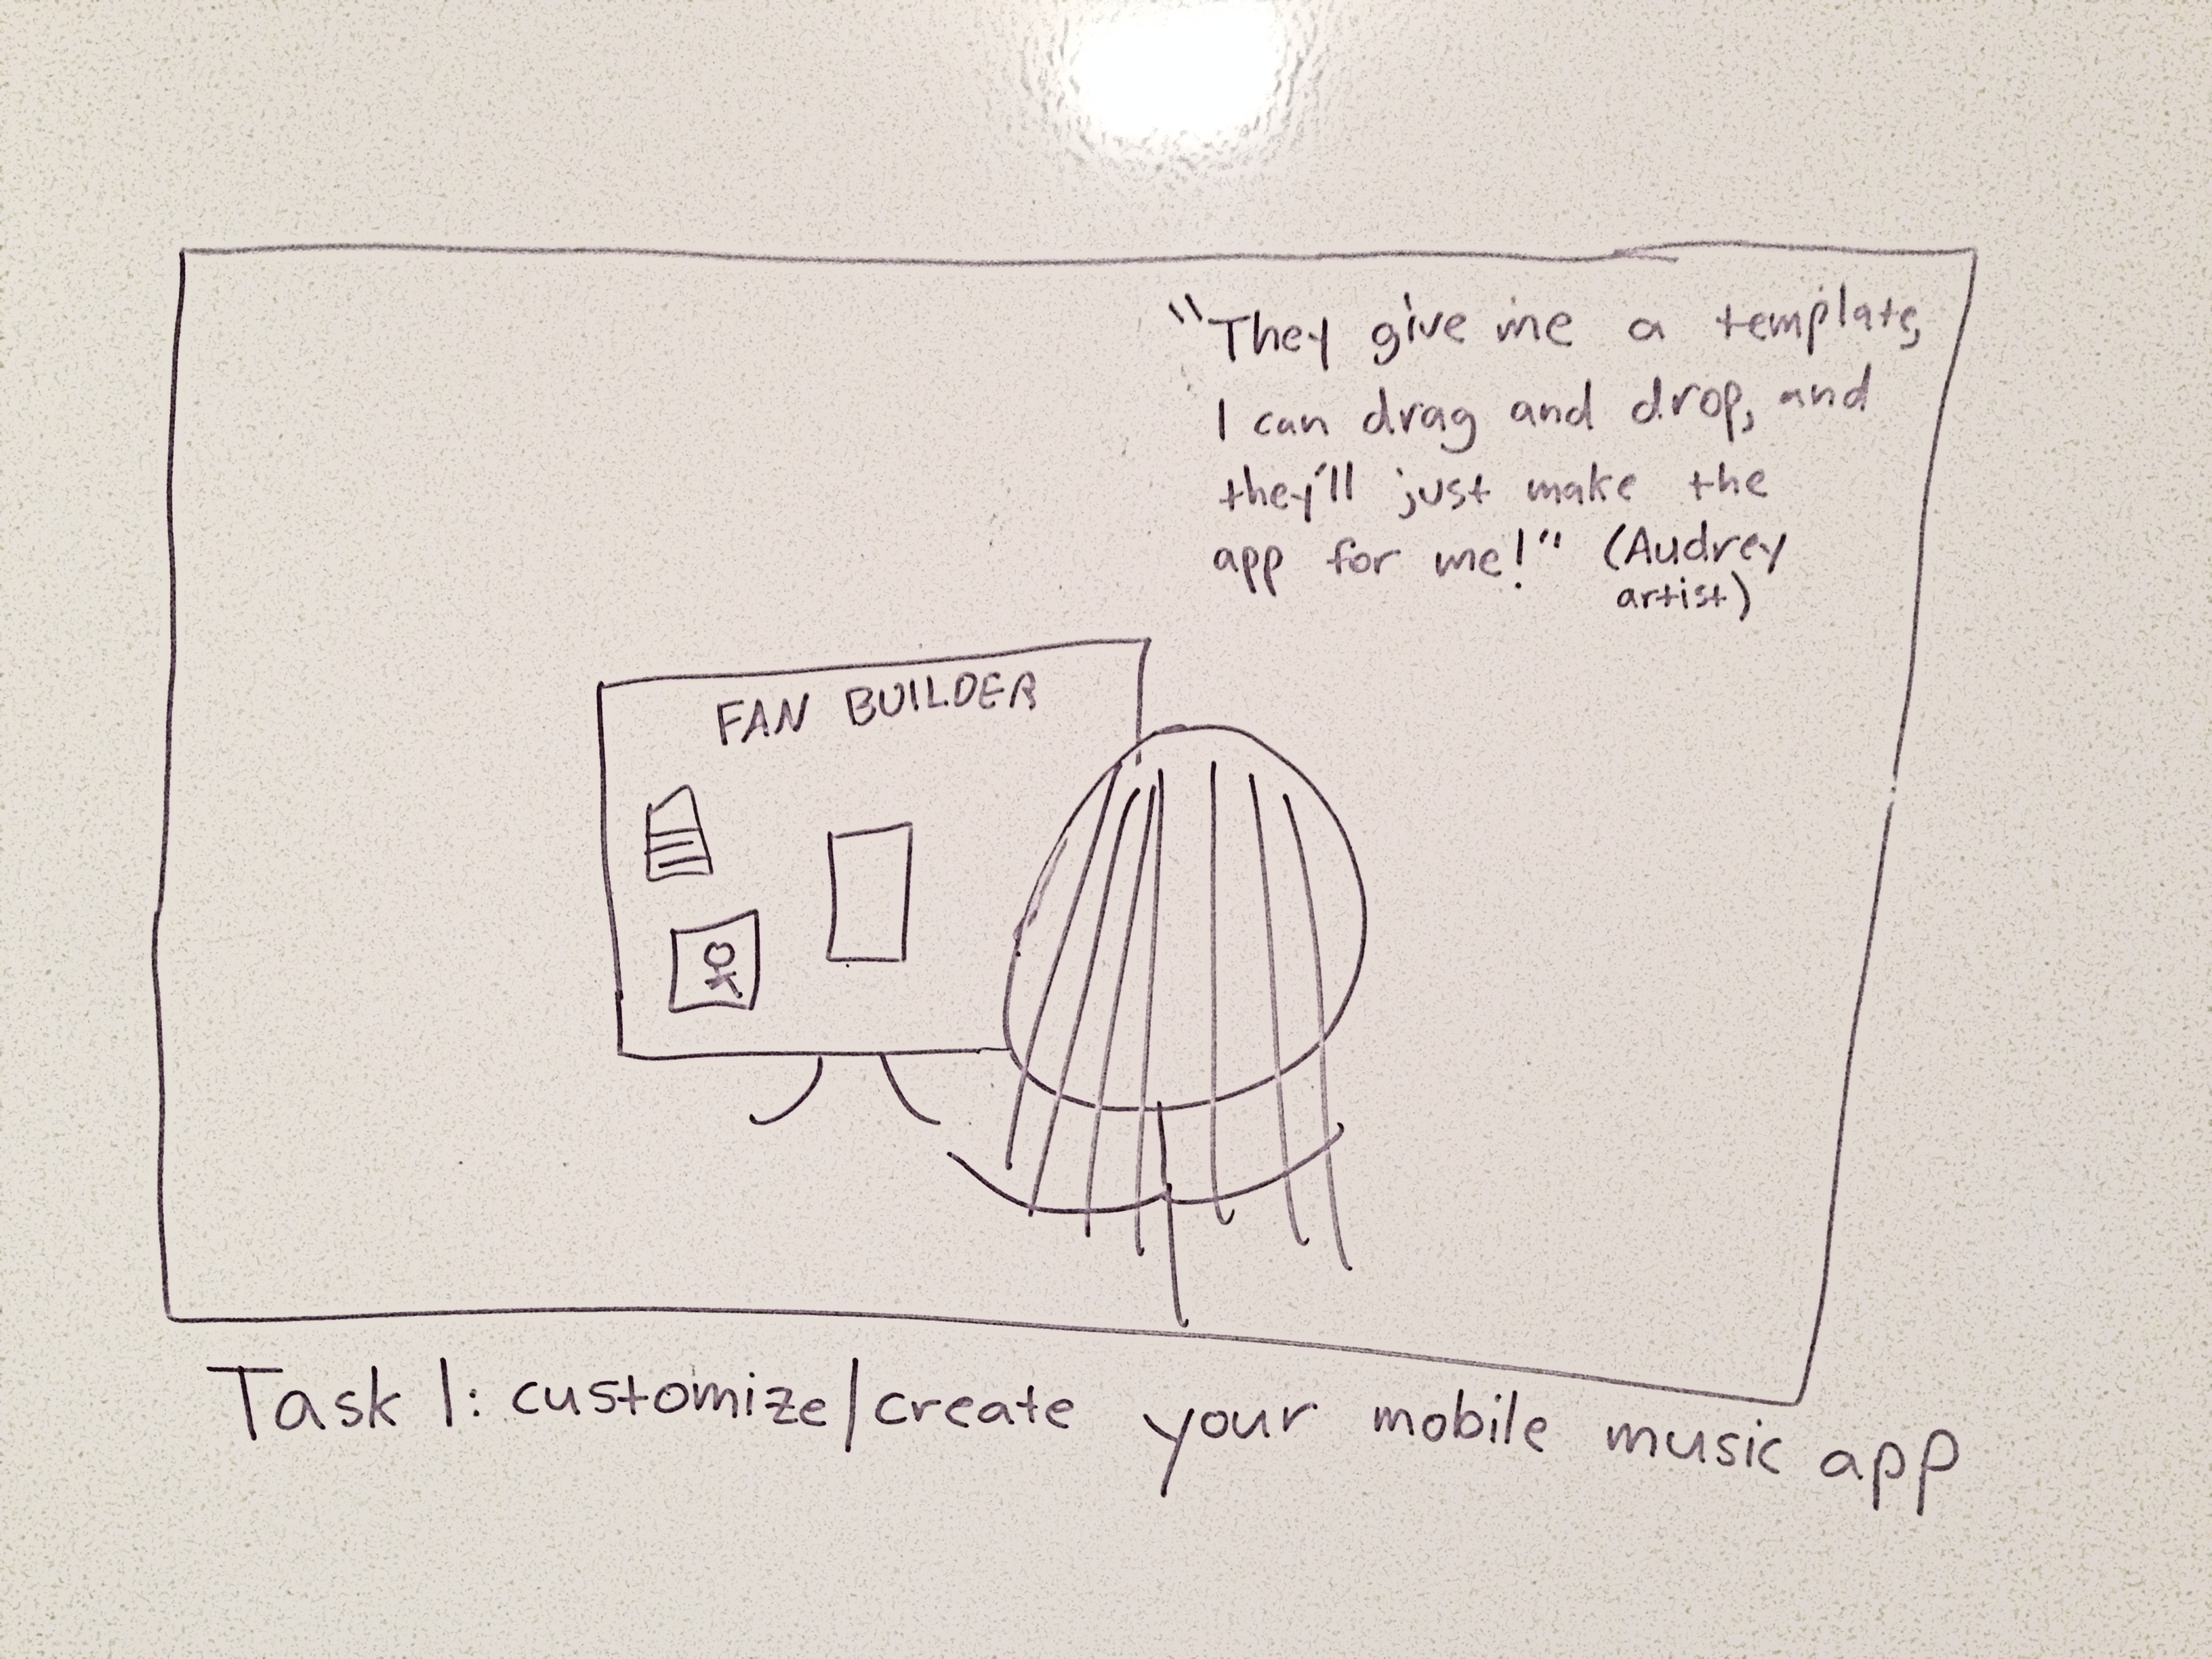 "They give me a template,
I can drag and drop, and
they'll just make the
app for me!" (Audrey
artist)
FAN BUILDER
Task 1: customize/create your mobile music app